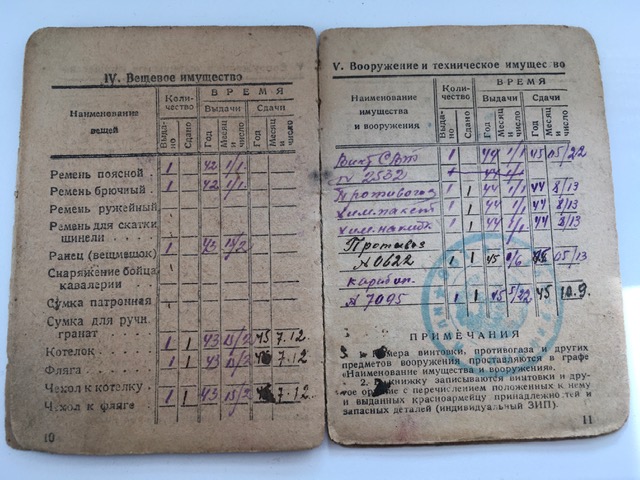 IV. Вещевое имущество
Наименование вещей
Количество
ВРЕМЯ
Выдачи
Сдачи
Выдано
Сдано
Год
Месяц и число
Год
Месяц и число
Ремень поясной . 1 42 1/1
Ремень брючный . 1 42 1/1
Ремень ружейный
Ремень для скатки
шинели . . . .
Ранец (вещмешок) 1 43 15/2
Снаряжение бойца
кавалерии
Сумка патронная
Сумка для ручн.
гранат . . . .
Котелок . . . . 1 1 43 15/2 45 7.12
Фляга . . . . . 1 1 43 15/2 7.12
Чехол к котелку . 1 1 43 15/2 7.12
Чехол к фляге
10
V. Вооружение и техническое имущес во
Наименование
имущества
и вооружения
Количество
ВРЕМЯ
Выдачи
Сдачи
Выдано
Сдано
Год
Месяц и число
Год
Месяц и число
Винт СВТ 1 44 1/1 45 05/22
№ 2532
Противогаз 1 1 44 1/1 44 8/13
Хим. пакет 1 1 44 1/1 44 8/13
Хим. накидк 1 1 44 1/1 44 8/13
Противог
№ 0622 1 1 45 05/13
карабин
№ 7095 1 1 45 5/22 45 10.9.
ПРИМЕЧАНИЯ
мера винтовки, противогаза и других
предметов вооружения проставляются в графе
«Наименование имущества и вооружения».
2. В книжку записываются винтовки и дру-
гое оружие с перечислением положенных к нему
и выданных красноармейцу принадлежностей и
запасных деталей (индивидуальный ЗИП).
11